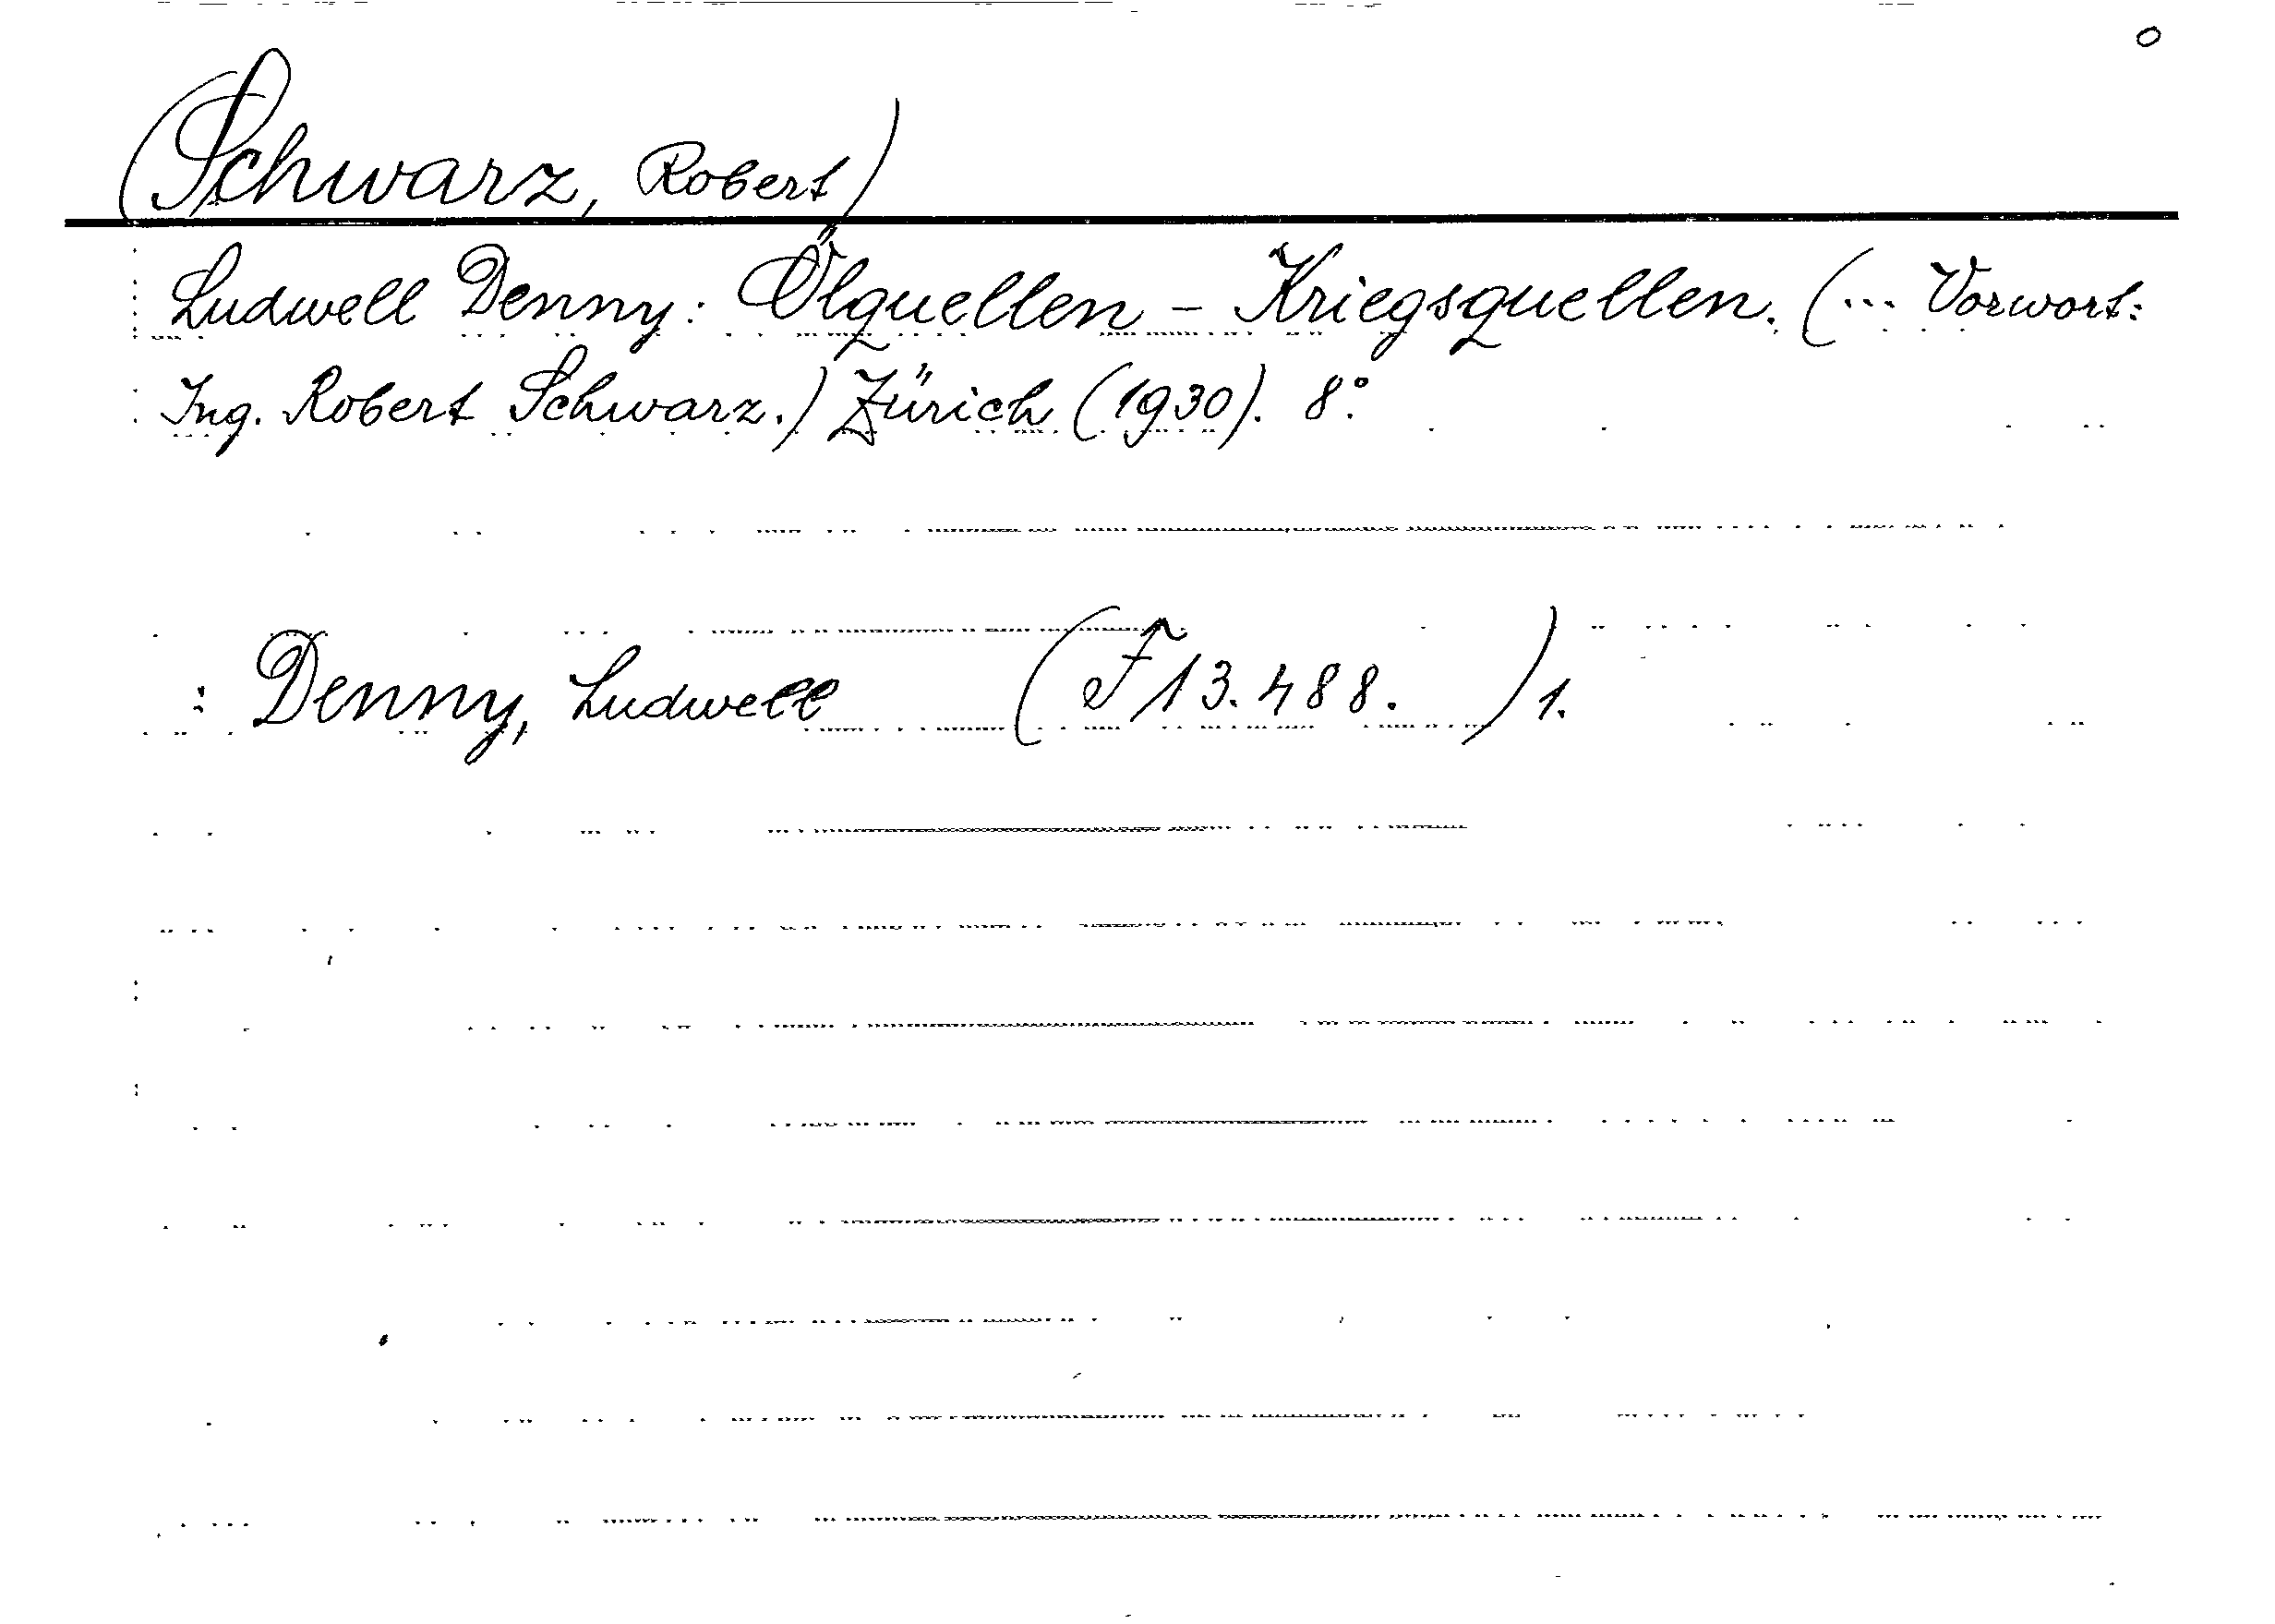 (Schwarz, Robert)
Ludwell Denny: Ölquellen - Kriegsquellen. (... Vorwort:
Ing. Robert Schwarz.) Zürich (1930). 8°.
: Denny, Ludwell (F 13.488. ) 1.